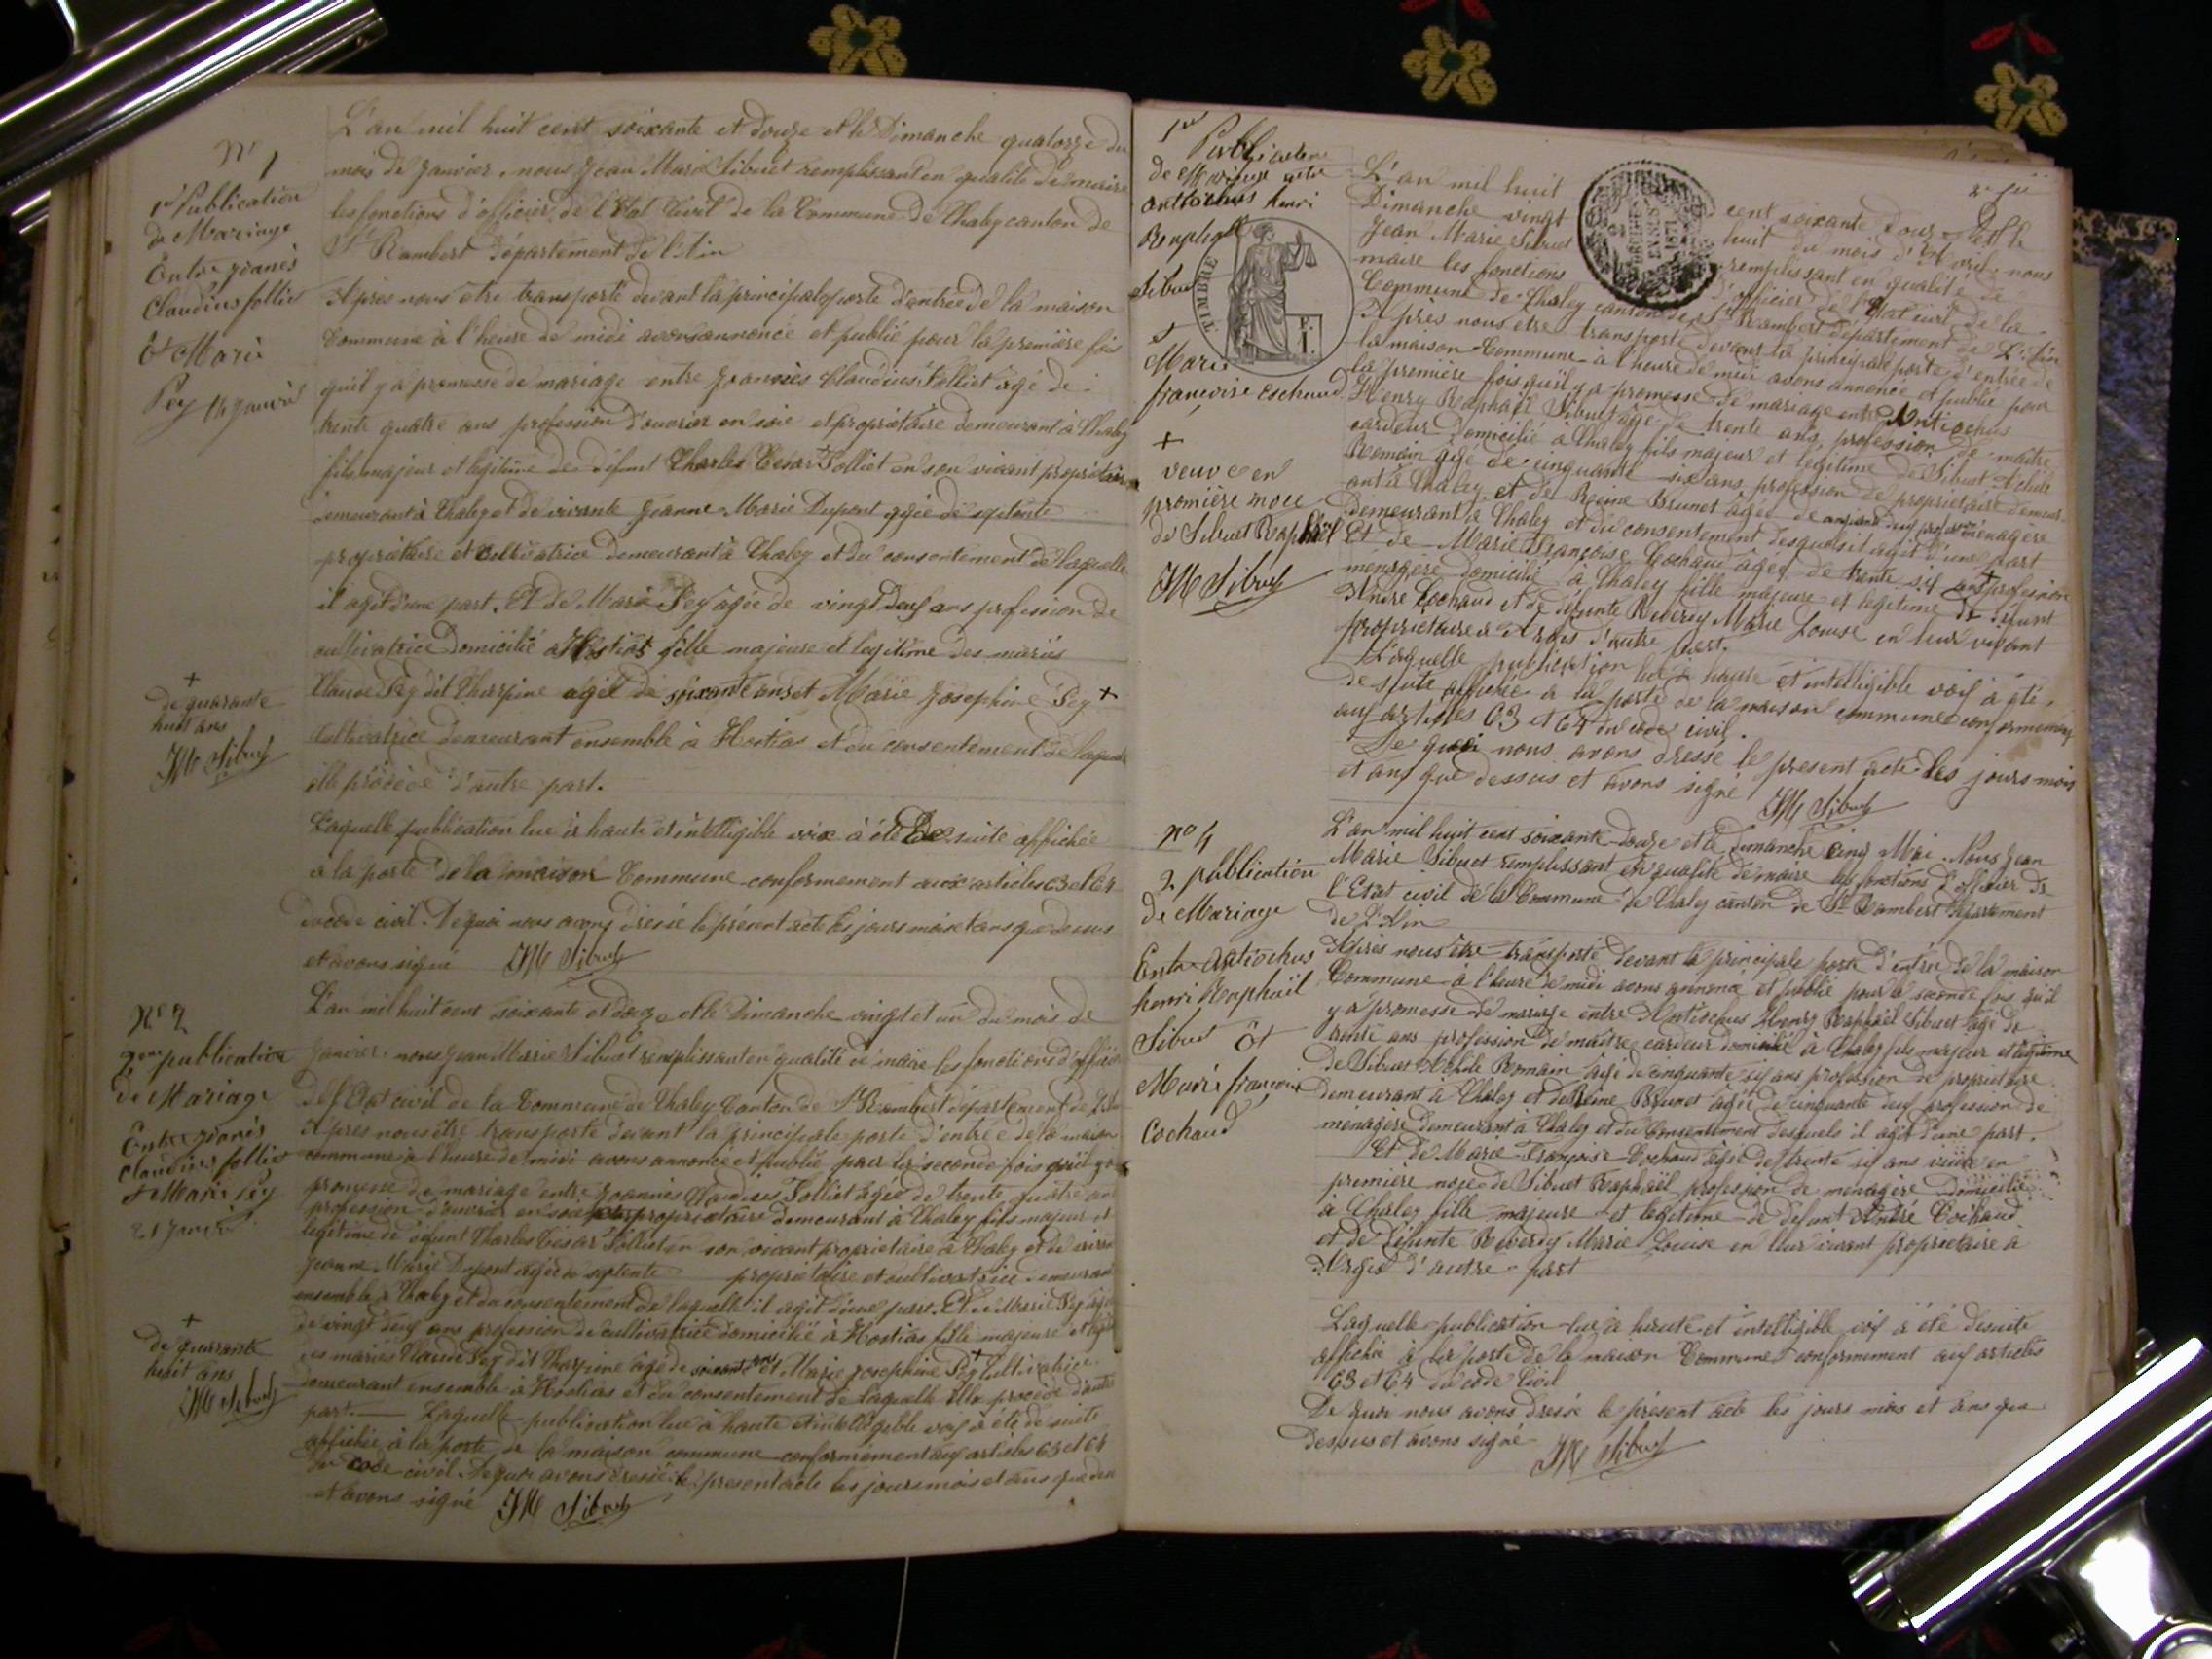 N° 1
1re Publication
de Mariage
Entre Joanès
Claudius follies
Et Marie
Pey 14 Janvier
L'an mil huit cent soixante et douze et le Dimanche quatorze du
mois de Janvier, nous Jean Marie Sibuet remplissant en qualité de maire
les fonctions d'officier de l'Etat Civil de la Commune de Chaley canton de
St Rambert département de l'Ain
Après nous etre transporté devant la principale porte d'entrée de la maison
Commune à l'heure de midi avons annoncé et publié pour la première fois
qu'il y a promesse de mariage entre Joannès Claudius Folliet agé de
trente quatre ans profession d'ouvrier en soie et propriétaire demeurant à Chaley
fils majeur et légitime de défunt Charles César Folliet en son vivant propriétaire
demeurant à Chaley et de vivante Jeanne Marie Dupont agée de septente
propriétaire et cultivatrice demeurant à Chaley et du consentement de laquelle
il agit d'une part. Et de Marie Pey agée de vingt deux ans profession de
cultivatrice domicilié à Hostias fille majeure et legitime des mariés
Claude Pey dit Charpine agée de soixante ans et Marie Josephine Pey +
cultivatrice demeurant ensemble à Hostias et du consentement de laquelle
elle procède d'autre part.
+
de quarante
huit ans
JM Sibuet
Laquelle publication lue à haute et intelligible voix à été De suite affichée
à la porte de la maison Commune conformement aux articles 63 et 64
du code civil. De quoi nous avons dressé le présent acte les jours mois et ans que dessus
et avons signé JM Sibuet
N° 2
2eme publication
de Mariage
Entre Joanès
Claudius follies
et Marie Pey
21 Janvier
L'an mil huit cent soixante et douze et le Dimanche vingt et un du mois de
Janvier, nous Jean Marie Sibuet remplissant en qualité de maire les fonctions d'officier
de l'Etat civil de la Commune de Chaley Canton de St Rambert département de l'Ain
Après nous être transporté devant la principale porte d'entrée de la maison
commune à l'heure de midi avons annoncé et publié pour la seconde fois qu'il y a
promesse de mariage entre Joannies Claudius Folliet agée de trente quatre ans
profession d'ouvrier en soie propriétaire demeurant à Chaley fils majeur et
legitime de défunt Charles César Folliet en son vivant propriétaire à Chaley et de vivante
Jeanne Marie Dupont agée de septente propriétaire et cultivatrice demeurant
ensemble à Chaley et du consentement de laquelle il agit d'une part. Et de Marie Pey agée
de vingt deux ans profession de cultivatrice domicilié à Hostias fille majeure et
des mariés Claude Pey dit Charpine agé de soixante ans et Marie Josephine Pey + Cultivatrice
demeurant ensemble à Hostias et du consentement de laquelle Elle procède d'autre
part. Laquelle publication lue à haute et intelligible voix à été de suite
affichée à la porte de la maison commune conformément aux articles 63 et 64
du code civil. De quoi avons dressé le present acte les jours mois et ans que dessus
et avons signé JM Sibuet
+
de quarante
huit ans
JM Sibuet
1re Publication
de Mariage entre
Antiochus henri
Raphael
Sibuet
et
Marie
françoise Cochaud
+
veuve en
première noce
de Sibuet Raphaël
JM Sibuet
TIMBRE
1871
L'an mil huit cent soixante douze et le
Dimanche vingt huit du mois d'Avril, nous
Jean Marie Sibuet remplissant en qualité de
maire les fonctions d'officier de l'Etat civil de la
Commune de Chaley canton de St Rambert département de L'Ain
Après nous etre transporté devant la principale porte d'entrée de
la maison Commune à l'heure de midi avons annoncé et publié pour
la première fois qu'il y a promesse de mariage entre Antiochus
Henry Raphaël Sibuet agé de trente ans, profession de maître
cardeur domicilié à Chaley fils majeur et legitime de Sibuet Achile
Romain agé de cinquante six ans, profession de propriétaire demeur-
ant à Chaley et de Reine Brunet agée de cinquante deux profession ménagère
demeurant à Chaley et du consentement desquels il agit d'une part
Et de Marie Françoise Cochaud âgée de trente six ans + profession
ménagère domicilié à Chaley fille majeure et legitime de défunt
André Cochaud et de défunte Reverdy Marie Louise en leur vivant
propriétaire à Argis d'autre part.
Laquelle publication lue à haute et intelligible voix à été,
de suite affichée à la porte de la maison commune conformement
aux articles 63 et 64 du code civil.
De quoi nous avons dressé le present acte les jours mois
et ans que dessus et avons signé JM Sibuet
N° 4
2 publication
de Mariage
Entre Antiochus
henri Raphaël
Sibuet Et
Marie françoise
Cochaud
L'an mil huit cent soixante douze et le Dimanche Cinq Mai. Nous Jean
Marie Sibuet remplissant en qualité de maire les fonctions d'officier de
l'Etat civil de la Commune de Chaley canton de St Rambert département
de L'Ain
Après nous être transporté devant la principale porte d'entrée de la maison
Commune à l'heure de midi avons annoncé et publié pour la seconde fois qu'il
y a promesse de mariage entre Antiochus Henry Raphaël Sibuet agé de
trente ans profession de maître cardeur domicilié à Chaley fils majeur et légitime
de Sibuet Achile Romain agé de cinquante six ans profession de propriétaire
demeurant à Chaley et de Reine Brunet agée de cinquante deux profession de
ménagère demeurant à Chaley et du Consentement desquels il agit d'une part.
Et de Marie Françoise Cochaud âgée de trente six ans veuve en
première noce de Sibuet Raphaël profession de menagère domicilié
à Chaley fille majeure et legitime de défunt André Cochaud
et de défunte Reverdy Marie Louise en leur vivant propriétaire à
Argis d'autre part
Laquelle publication lue à haute et intelligible voix à été de suite
affichée à la porte de la maison Commune conformement aux articles
63 et 64 du code Civil
De quoi nous avons dressé le présent acte les jours mois et ans que
dessus et avons signé JM Sibuet